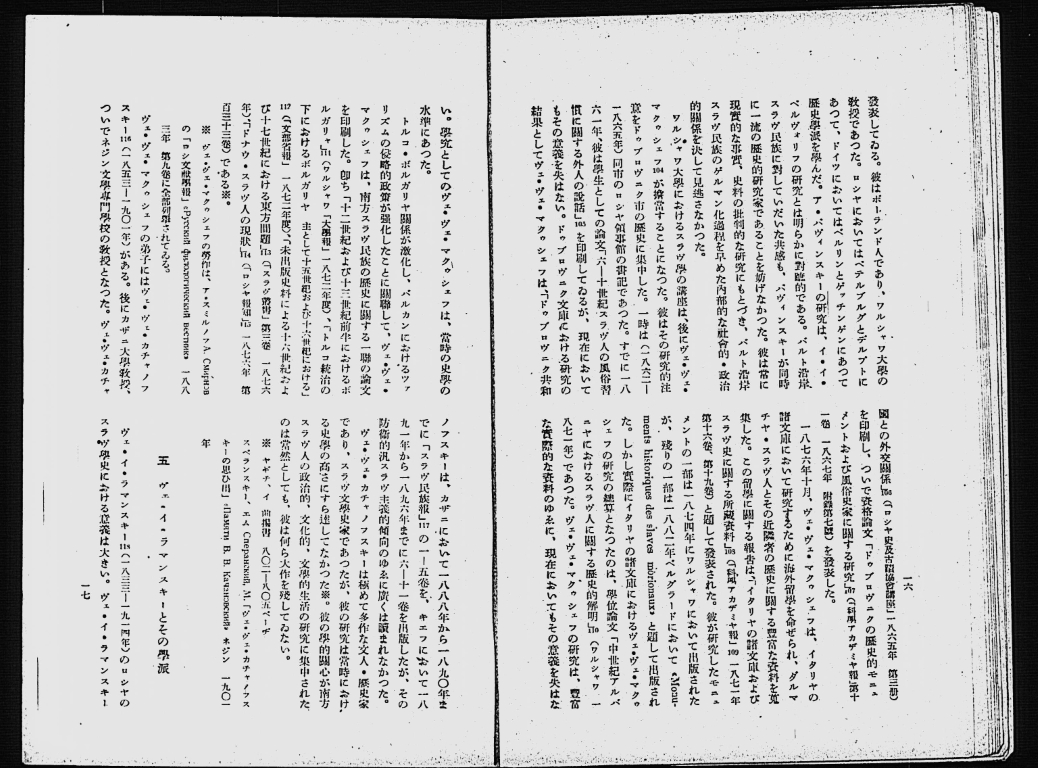 發表してゐる。彼はポーランド人であり、ワルシャワ大學の
教授であつた。ロシヤにおいてはペテルブルグとデルプトに
あつて、ドイツにおいてはベルリンとゲッチンゲンにあつて
歴史學派を學んだ。ア・パヴィンスキーの研究は、イ・イ・
ペルヴォリフの研究とは明らかに對蹠的である。バルト沿岸
スラヴ民族に對していだいた共感も、パヴィンスキーが同時
に一流の歴史的研究家であることを妨げなかつた。彼は常に
現實的な事實、史料の批判的な研究にもとづき、バルト沿岸
スラヴ民族のゲルマン化過程を早めた内部的な社會的・政治
的關係を決して見逃さなかつた。
ワルシャワ大學におけるスラヴ學の講座は、後にヴェ・ヴェ・
マクゥシェフ104が擔當することになつた。彼はその研究的注
意をドゥブロヴニク市の歴史に集中した。一時は(一八六二—
一八六五年)同市のロシヤ領事館の書記であつた。すでに一八
六一年、彼は學生としての論文「六—十世紀スラヴ人の風俗習
慣に關する外人の說話」105を印刷してゐるが、現在において
もその意義を失はない。ドゥブロヴニク文庫における研究の
結果としてヴェ・ヴェ・マクゥシェフは、「ドゥブロヴニク共和
國との外交關係」106(「ロシヤ史及古蹟協會講座」一八六五年 第三册)
を印刷し、ついで資格論文「ドゥブロヴニクの歴史的モニュ
メントおよび風俗史家に關する研究」107(「科學アカデミヤ報」第十
一卷 一八六七年 附錄第七號)を發表した。
一八七六年十月、ヴェ・ヴェ・マクゥシェフは、イタリヤの
諸文庫において研究するために海外留學を命ぜられ、ダルマ
チヤ・スラヴ人とその近隣者の歴史に關する豐富な資料を蒐
集した。この留學に關する報告は「イタリヤの諸文庫および
スラヴ史に關する所藏資料」108(「科學アカデミヤ報」109 一八七一年
第十六卷、第十九卷)と題して發表された。彼が研究したモニュ
メントの一部は一八七四年にワルシャワにおいて出版された
が、殘りの一部は一八八二年ベルグラードにおいて «Monu-
ments historiques des slaves méridionaux» と題して出版され
た。しかし實際にイタリヤの諸文庫におけるヴェ・ヴェ・マクゥ
シェフの研究の總算となつたのは、學位論文「中世紀アルバ
ニヤにおけるスラヴ人に關する歴史的解明」110(ワルシャワ 一
八七一年)であつた。ヴェ・ヴェ・マクゥシェフの研究は、豐富
な實際的な資料のゆゑに、現在においてもその意義を失はな
一六
い。學究としてのヴェ・ヴェ・マクゥシェフは、當時の史學の
水準にあつた。
トルコ・ボルガリヤ關係が激化し、バルカンにおけるツァ
リズムの侵略的政策が强化したことに關聯して、ヴェ・ヴェ・
マクゥシェフは、南方スラヴ民族の歴史に關する一聯の論文
を印刷した。卽ち「十二世紀および十三世紀前半におけるボ
ルガリヤ」111(ワルシャワ「大學報」一八七二年度)、「トルコ統治の
下におけるボルガリヤ 主として十五世紀および十六世紀における」
112(「文部省報」一八七二年度)「未出版史料による十六世紀およ
び十七世紀における東方問題」113(「スラヴ叢書」第三卷 一八七六
年)「ドナウ・スラヴ人の現狀」114(「ロシヤ報知」115 一八七六年 第
百三十三卷)である※。
※ ヴェ・ヴェ・マクゥシェフの勞作は、ア・スミルノフ А. Смирнов
の「ロシヤ文獻學報」«Русский филологический вестник» 一八八
三年 第九卷に全部列擧されてゐる。
ヴェ・ヴェ・マクゥシェフの弟子にはヴェ・ヴェ・カチャノフ
スキー116(一八五三—一九〇一年)がある。後にカザニ大學教授、
ついでネジン文學專門學校の教授となつた。ヴェ・ヴェ・カチャ
ノフスキーは、カザニにおいて一八八八年から一八九〇年ま
でに「スラヴ民族報」117の一—五卷を、キエフにおいて一八
九一年から一八九六年までに六—十一卷を出版したが、その
防衛的汎スラヴ主義的傾向のゆゑに廣くは讀まれなかつた。
ヴェ・ヴェ・カチャノフスキーは極めて多作な文人・歴史家
であり、スラヴ文學史家であつたが、彼の研究は當時におけ
る史學の高さにすら達してなかつた※。彼の學的關心が南方
スラヴ人の政治的、文化的、文學的生活の研究に集中された
のは當然としても、彼は何ら大作を殘してゐない。
※ ヤギチ、イ 曲揭書 八〇二—八〇五ページ
スペランスキー、エム Сперанский, М.「ヴェ・ヴェ・カチャノフス
キーの思ひ出」«Памяти В. В. Качановский» ネジン 一九〇一
年
五 ヴェ・イ・ラマンスキーとその學派
ヴェ・イ・ラマンスキー118(一八三三—一九一四年)のロシヤの
スラヴ學史における意義は大きい。ヴェ・イ・ラマンスキー
一七